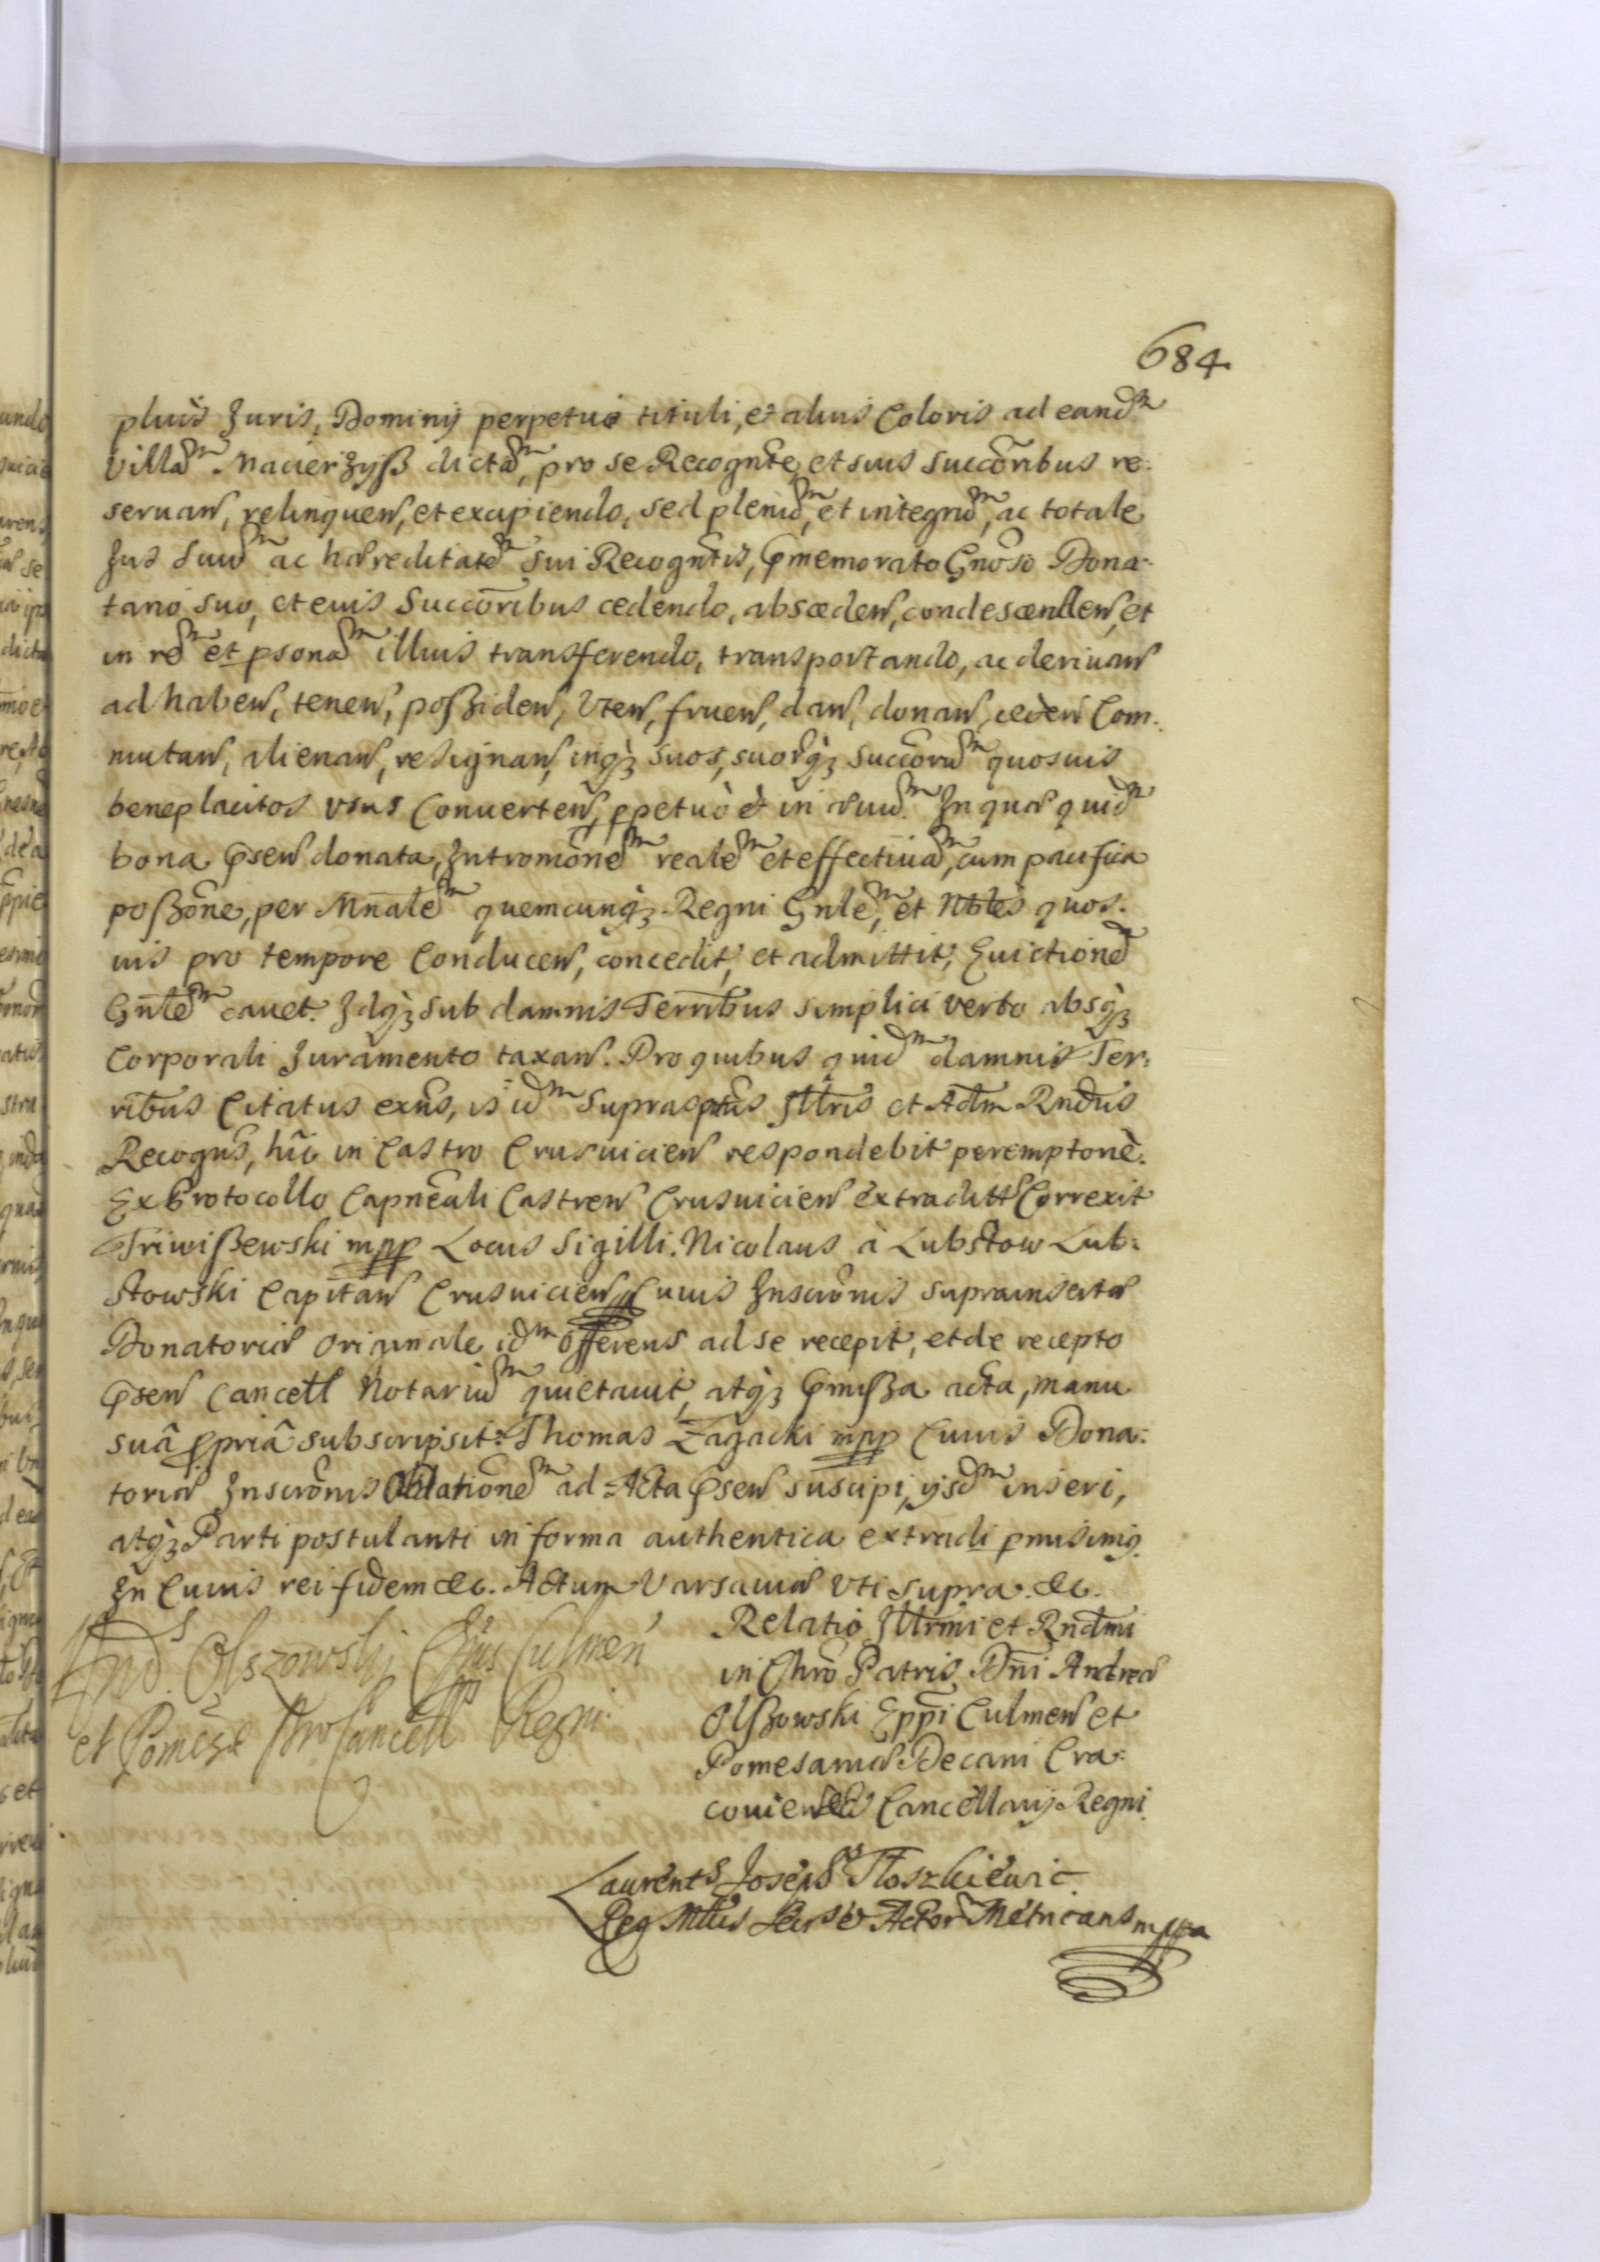 684.
pluis Juris, Dominij perpetui tituli, et alius Coloris ad eandm
Villam Macierzyß dictam, pro se Recognte, et suis Succoribus re:
seruan, relinquen, et excipiendo, sed plenum, et integrum, ac totale
Jus Suum ac hæreditatem sui Recogntis, Pmemorato Gnoso Dona-
tario suo, et euis Succoribus cedendo, abscæden, condescænden, et
in rem et psonam illius transferendo, transportando, ac deriuan
ad haben, tenen, poßiden, Vten, fruen, dan, donan, ceden Com:
mutan, alienan, resignan, inqz suos, suorqz Succorum quosuis
beneplacitos vsus Conuerten, ppetuò et in æuum. In quæ quidm
bona Psen donata, Intromonem realem et effectiuam, cum pacifica
poßone, per Mnalem quemcunqz Regni Gnlem, et Nbles quos-
uis pro tempore Conducen, concedit, et admittit, Euictionem
Gnlem cauet. Idqz sub damnis Terribus simplici verbo absqz
Corporali Juramento taxan. Pro quibus quidm damnis Ter:
ribus Citatus exns, is idm Suprascptus Illris et Adm Rndus
Recogns, hic in Castro Crusuicien respondebit peremptoriè.
Ex Protocollo Capneali Castren Crusuicien extradit Correxit
Triwißewski mpp Locus Sigilli. Nicolaus à Lubstow Lub:
stowski Capitan Crusuicien Cuius Inscronis suprainsertæ
Donatoriæ Originale idm Offerens ad se recepit, et de recepto
Psen Cancell Notarium quietauit, atqz Pmißa acta, manu
suâ ppriâ subscripsit. Thomas Zagacki mpp Cuius Dona:
toriæ Inscronis Oblationem ad Acta Psen suscipi, ijsdm inseri,
atqz Parti postulanti in forma authentica extradi pmisimus.
In Cuius rei fidem &c. Actum Varsauiæ Vti supra. &c.
And. Olszowski Eppus Culmen
et Pomeze ProCancell Regni
Relatio Illrmi et Rndmi
in Chro Patris Dni Andreæ
Olßowski Eppi Culmen et
Pomesaniæ Decani Cra:
couien Cancellarij Regni
Laurents Joseph Słoszkiewic
Reg Mttis Actor Metricans mppa